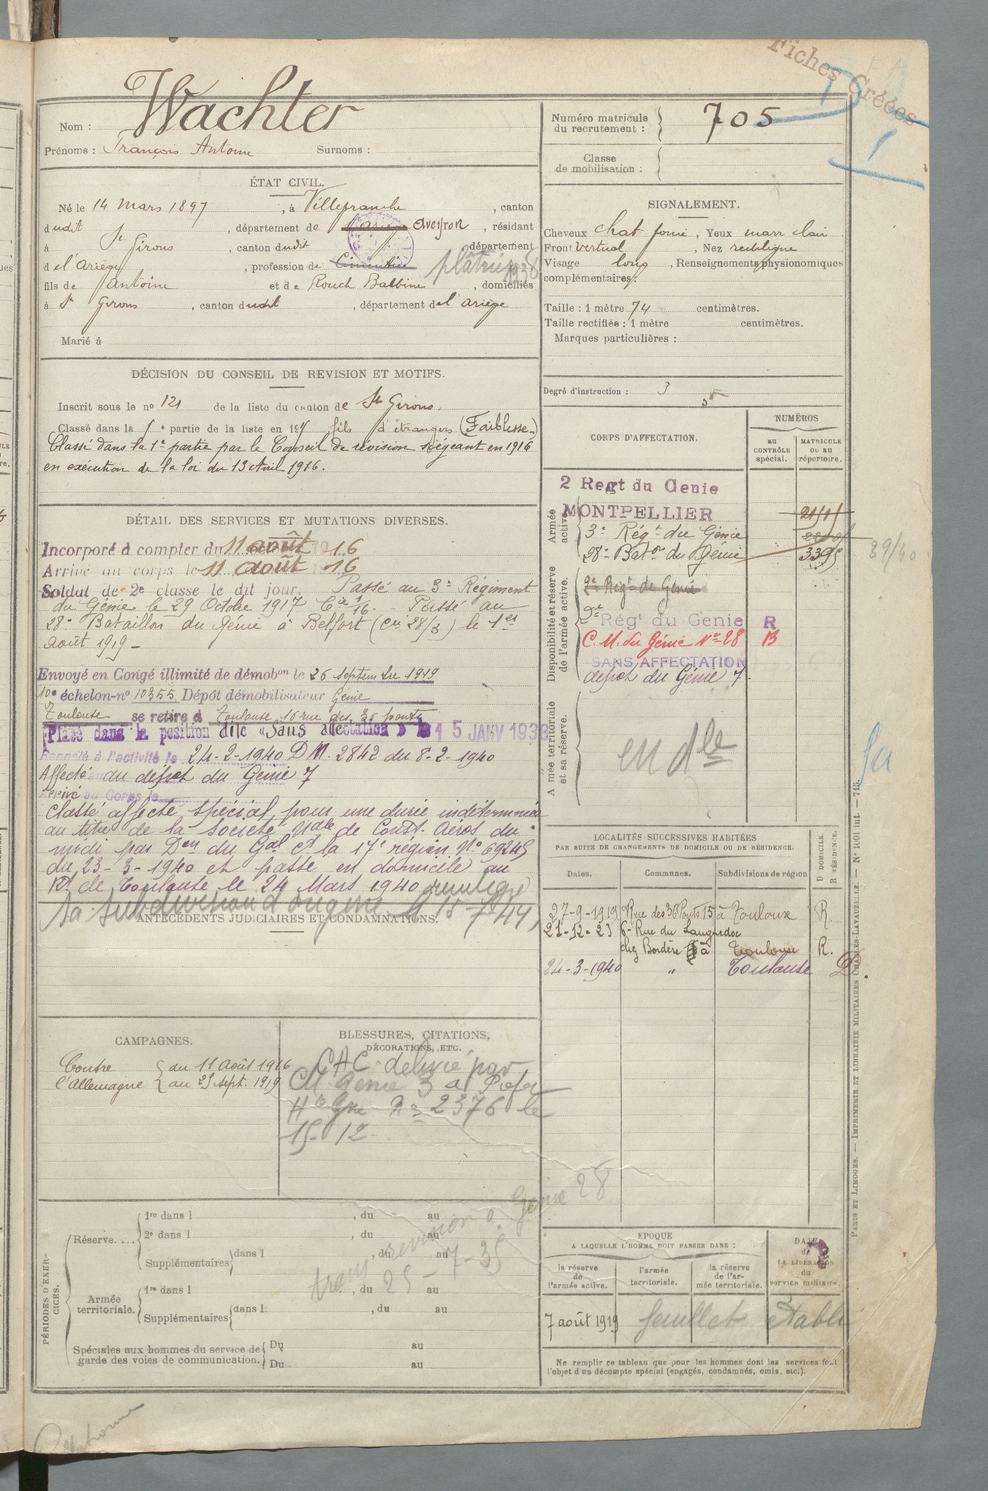 Fiches Créées
Nom : Wachter
Prénoms : François Antoine Surnoms :
Numéro matricule du recrutement : 705
Classe de mobilisation :
1
ÉTAT CIVIL.
Né le 14 mars 1897, à Villefranche, canton
dudit, département de Aveyron, résidant
à St Girons, canton dudit département
d l'Ariège, profession de plâtrier
fils de Antoine et de Rouch Balbine, domiciliés
à St Girons, canton dudit, département de l'Ariège
Marié à
SIGNALEMENT.
Cheveux chat foncé, Yeux marr clair
Front vertical, Nez rectiligne
Visage long, Renseignements physionomiques
complémentaires :
Taille : 1 mètre 74 centimètres.
Taille rectifiée : 1 mètre centimètres.
Marques particulières :
Degré d'instruction : 3
DÉCISION DU CONSEIL DE REVISION ET MOTIFS.
Inscrit sous le n° 121 de la liste du canton de St Girons.
Classé dans la partie de la liste en 191 fils d'étrangers (Faiblesse)
Classé dans la 1re partie par le Conseil de révision siégeant en 1916
en exécution de la loi du 13 Avril 1916.
DÉTAIL DES SERVICES ET MUTATIONS DIVERSES.
Incorporé à compter du 11 août 1916
Arrivé au corps le 11 août 16
Soldat de 2e classe le dit jour Passé au 3e Régiment
du Génie le 29 Octobre 1917 Cie 16. Passé au
28e Bataillon du Génie à Belfort (Cie 28/3) le 1er
août 1919
Envoyé en Congé illimité de démobon le 26 septembre 1919
10e échelon-n° 10355 Dépôt démobilisateur Génie
Toulouse se retire à Toulouse 16 rue des 36 ponts
Placé dans la position dite «Sans affectation» 15 JANV 193
Rappelé à l'activité le 24-2-1940 DM. 2842 du 8-2-1940
Affecté au dépôt du Génie 7
Arrivé au Corps le
Classé affecté spécial pour une durée indéterminée
au titre de la Société Nale de Const. Aéros. du
midi par Don du Gal Ct la 17e région N° 69245
du 23-3-1940 et passe en domicile au
Rt de Toulouse le 24 Mars 1940
sa subdivision d'origine
CORPS D'AFFECTATION.
NUMÉROS
au CONTRÔLE spécial.
MATRICULE ou au répertoire.
Armée active.
2 Regt du Genie
MONTPELLIER
3e Régt du Génie
28e Baton du Génie 3395
39/40
Disponibilité et réserve de l'armée active.
2e Régt de Génie
2e Régt du Genie R
C.M. du Génie N° 28 B
SANS AFFECTATION
dépôt du Génie 7.
Armée territoriale et sa réserve.
en dle
Sa
LOCALITÉS SUCCESSIVES HABITÉES
PAR SUITE DE CHANGEMENTS DE DOMICILE OU DE RÉSIDENCE.
Dates. Communes. Subdivisions de région
D DOMICILE. R RÉSIDENCE.
27-9-1919 Rue des 36 Ponts 15 à Toulouse R.
21-12-23 6 Rue du Languedoc
chez Bordère à Toulouse R.
24-3-1940 " Toulouse D.
ANTÉCÉDENTS JUDICIAIRES ET CONDAMNATIONS.
CAMPAGNES.
Contre l'Allemagne
du 11 Août 1916
au 25 Sept. 1919
BLESSURES, CITATIONS,
DÉCORATIONS, ETC.
CAC délivré par
CM Génie
Hte Gne N° 2376 le
15-12
Génie 28
25-7-35
PÉRIODES D'EXERCICES.
Réserve....
1re dans l , du au
2e dans l , du au
Supplémentaires dans l , du au
Armée territoriale.
1re dans l , du au
Supplémentaires dans l , du au
Spéciales aux hommes du service de garde des voies de communication.
Du au
Du au
EPOQUE
A LAQUELLE L'HOMME DOIT PASSER DANS :
la réserve de l'armée active.
l'armée territoriale.
la réserve de l'armée territoriale.
DATE de LA LIBÉRATION du service militaire.
7 août 1919 feuillet établi
Ne remplir ce tableau que pour les hommes dont les services font
l'objet d'un décompte spécial (engagés, condamnés, omis, etc.).
PARIS ET LIMOGES. — IMPRIMERIE ET LIBRAIRIE MILITAIRES CHARLES-LAVAUZELLE.